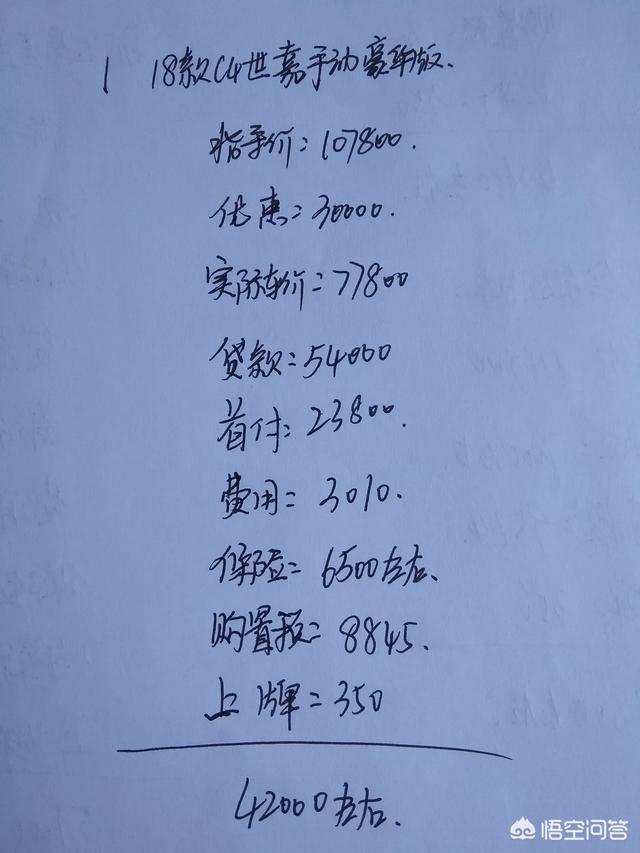 1 18款C4世嘉手动豪华版.
指导价=107800.
优惠=30000.
实际车价=77800
贷款=54000
首付=23800.
费用=3010.
保险=6500左右.
购置税=8845.
上牌=350
42000左右.
悟空问答